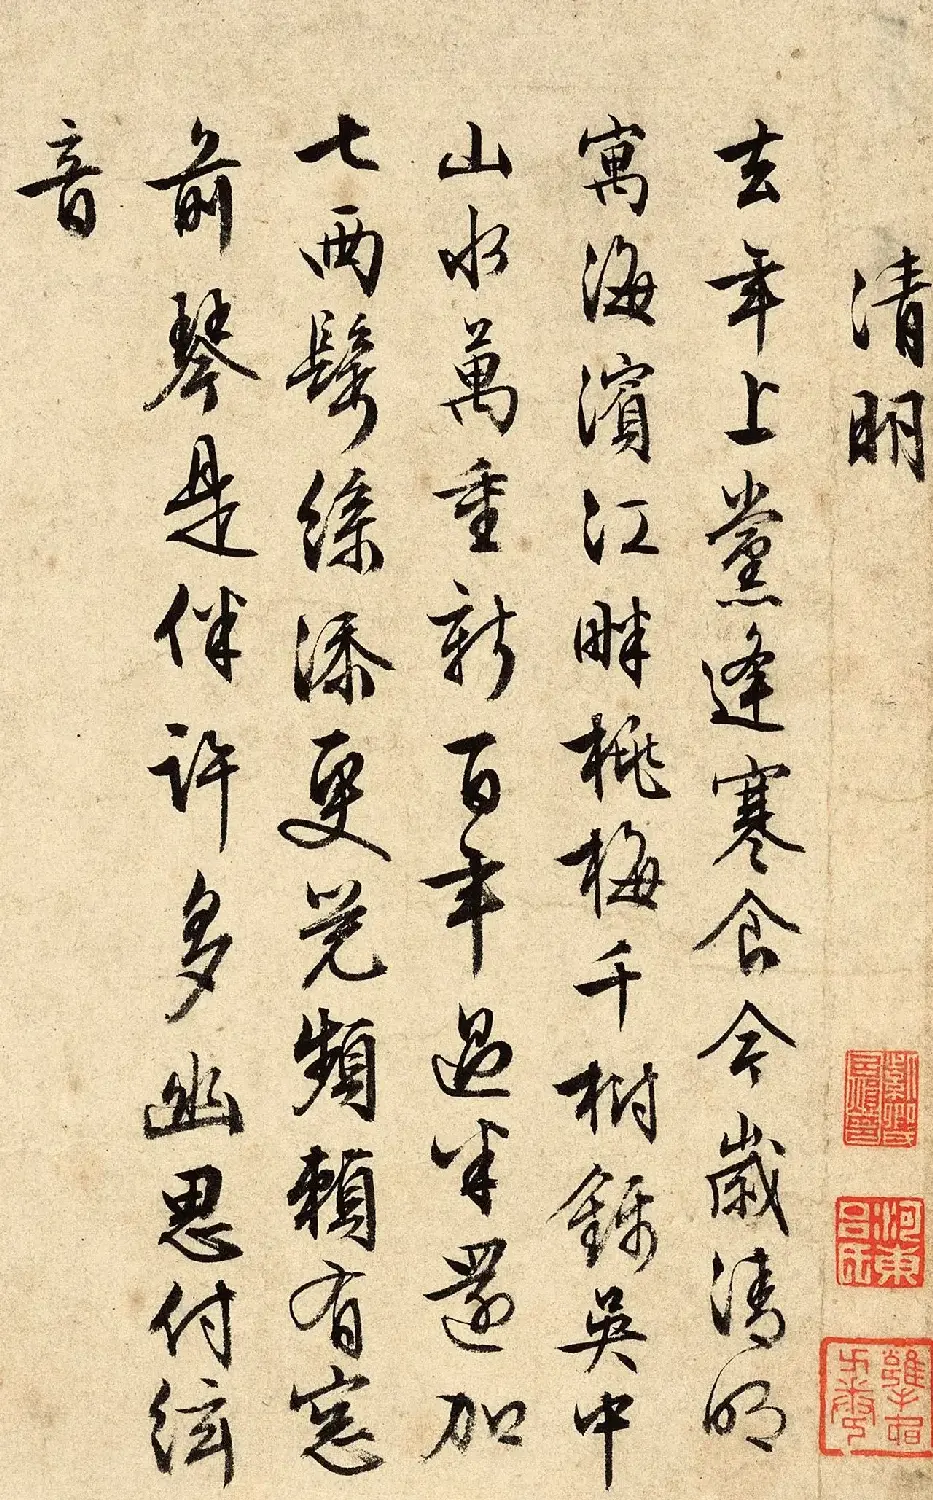 清明
去年上黨逢寒食今歲清明
寓海濱江畔桃梅千樹錦吳中
山水萬重新百年過半還加
七兩鬢絲添更覺頻賴有窓
前琴是伴許多幽思付絃
音
河東呂氏